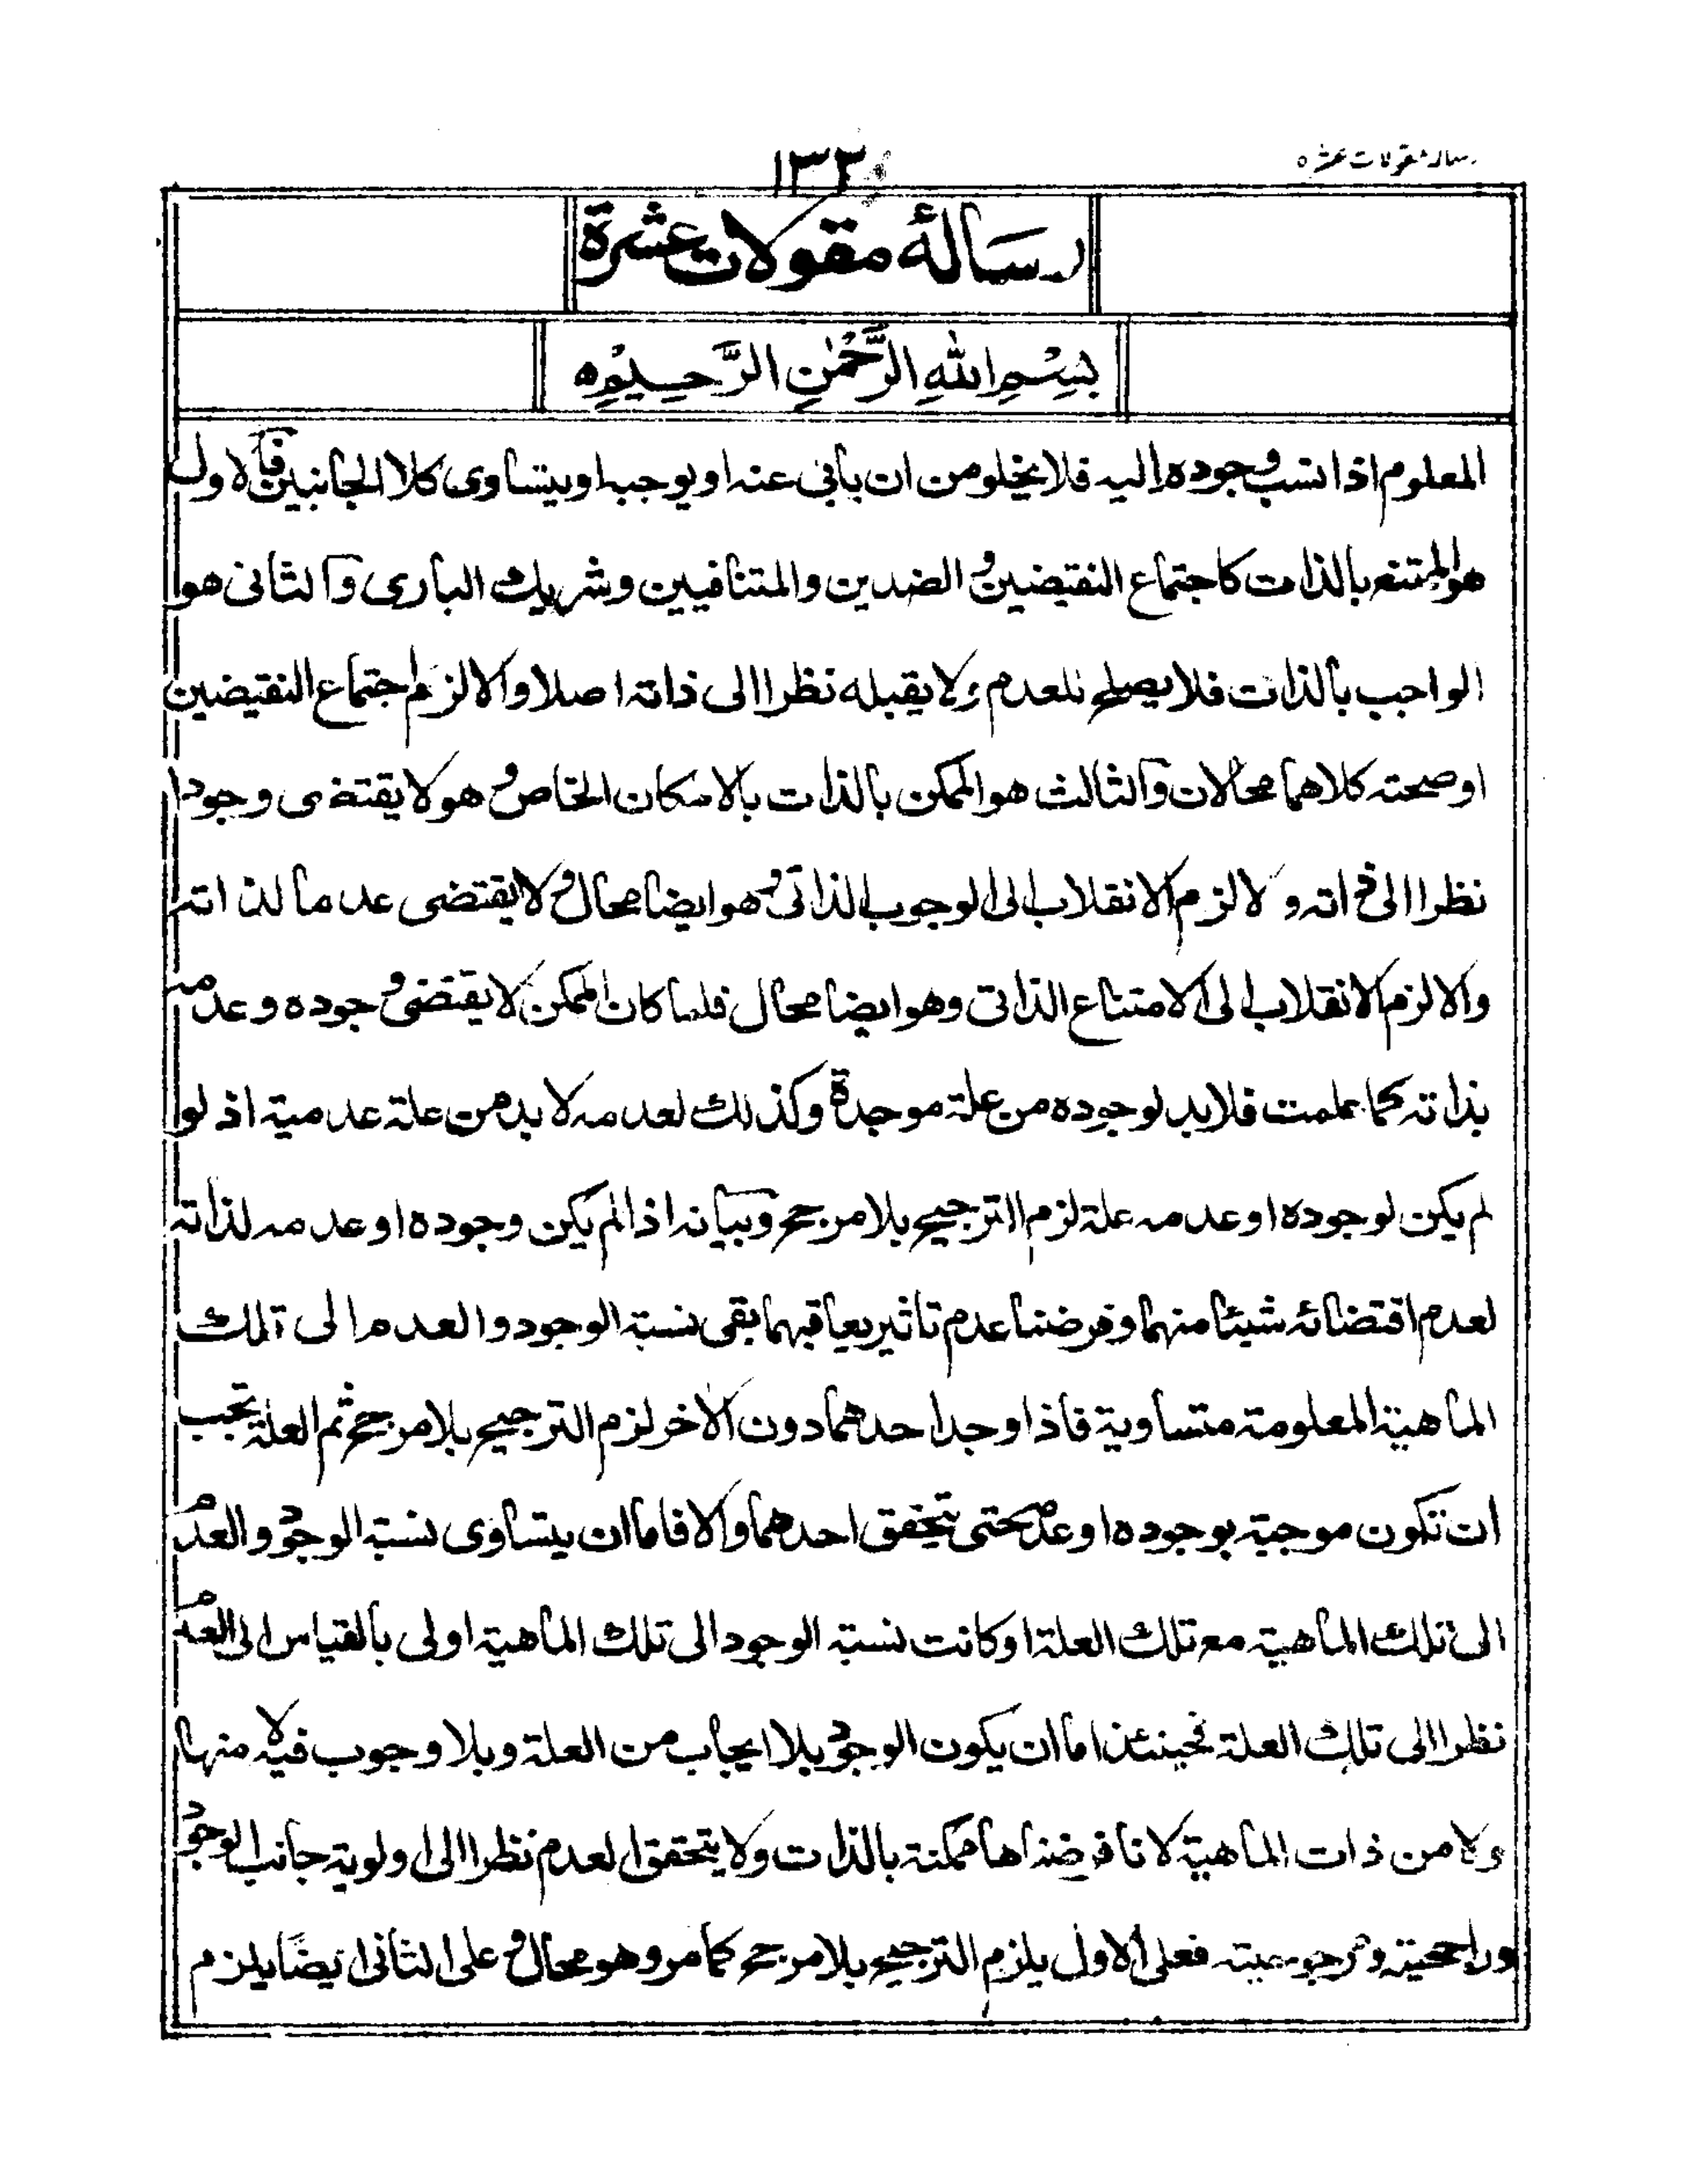 رسالہ مقولات عشرہ
١٣٣
رسالۂ مقولات عشرة
بِسْمِ اللهِ الرَّحْمٰنِ الرَّحِیْمِ
المعلوم اذا نسب وجوده إليه فلا يخلو من ان يأبى عنه او يوجبه او يتساوى كلا الجانبين فالاول
هو الممتنع بالذات كاجتماع النقيضين و الضدين والمتنافيين وشريك البارى والثانى هو
الواجب بالذات فلا يصلح للعدم ولا يقبله نظرا الى ذاته اصلا والا لزم اجتماع النقيضين
او صحته كلاهما محالان والثالث هو الممكن بالذات بالامكان الخاص و هو لا يقتضى وجودا
نظرا الى ذاته والا لزم الانقلاب الى الوجوب الذاتى وهو ايضا محال و لا يقتضى عدما لذاته
والا لزم الانقلاب الى الامتناع الذاتى وهو ايضا محال فلما كان الممكن لا يقتضى وجوده وعدمه
بذاته كما علمت فلابد لوجوده من علة موجدة وكذلك لعدمه لابد من علة عدمية اذ لو
لم يكن لوجوده او عدمه علة لزم الترجيح بلا مرجح وبيانه اذا لم يكن وجوده او عدمه لذاته
لعدم اقتضائه شيئا منهما وفرضنا عدم تاثير يعاقبهما بقى نسبة الوجود والعدم الى تلك
الماهية المعلومة متساوية فاذا وجد احدهما دون الاخر لزم الترجيح بلا مرجح ثم العلة تجب
ان تكون موجبة بوجوده او عدمه حتى يتحقق احدهما والا فاما ان يتساوى نسبة الوجود والعدم
الى تلك الماهية مع تلك العلة او كانت نسبة الوجود الى تلك الماهية اولى بالقياس الى العدم
نظرا الى تلك العلة فحينئذ اما ان يكون الوجود بلا ايجاب من العلة وبلا وجوب فيه لا منها
ولا من ذات الماهية لانا فرضناها ممكنة بالذات ولا يتحقق العدم نظرا الى اولوية جانب الوجود
وراجحيته و مرجوحيته فعلى الاول يلزم الترجيح بلا مرجح كما مر وهو محال و على الثانى ايضًا يلزم